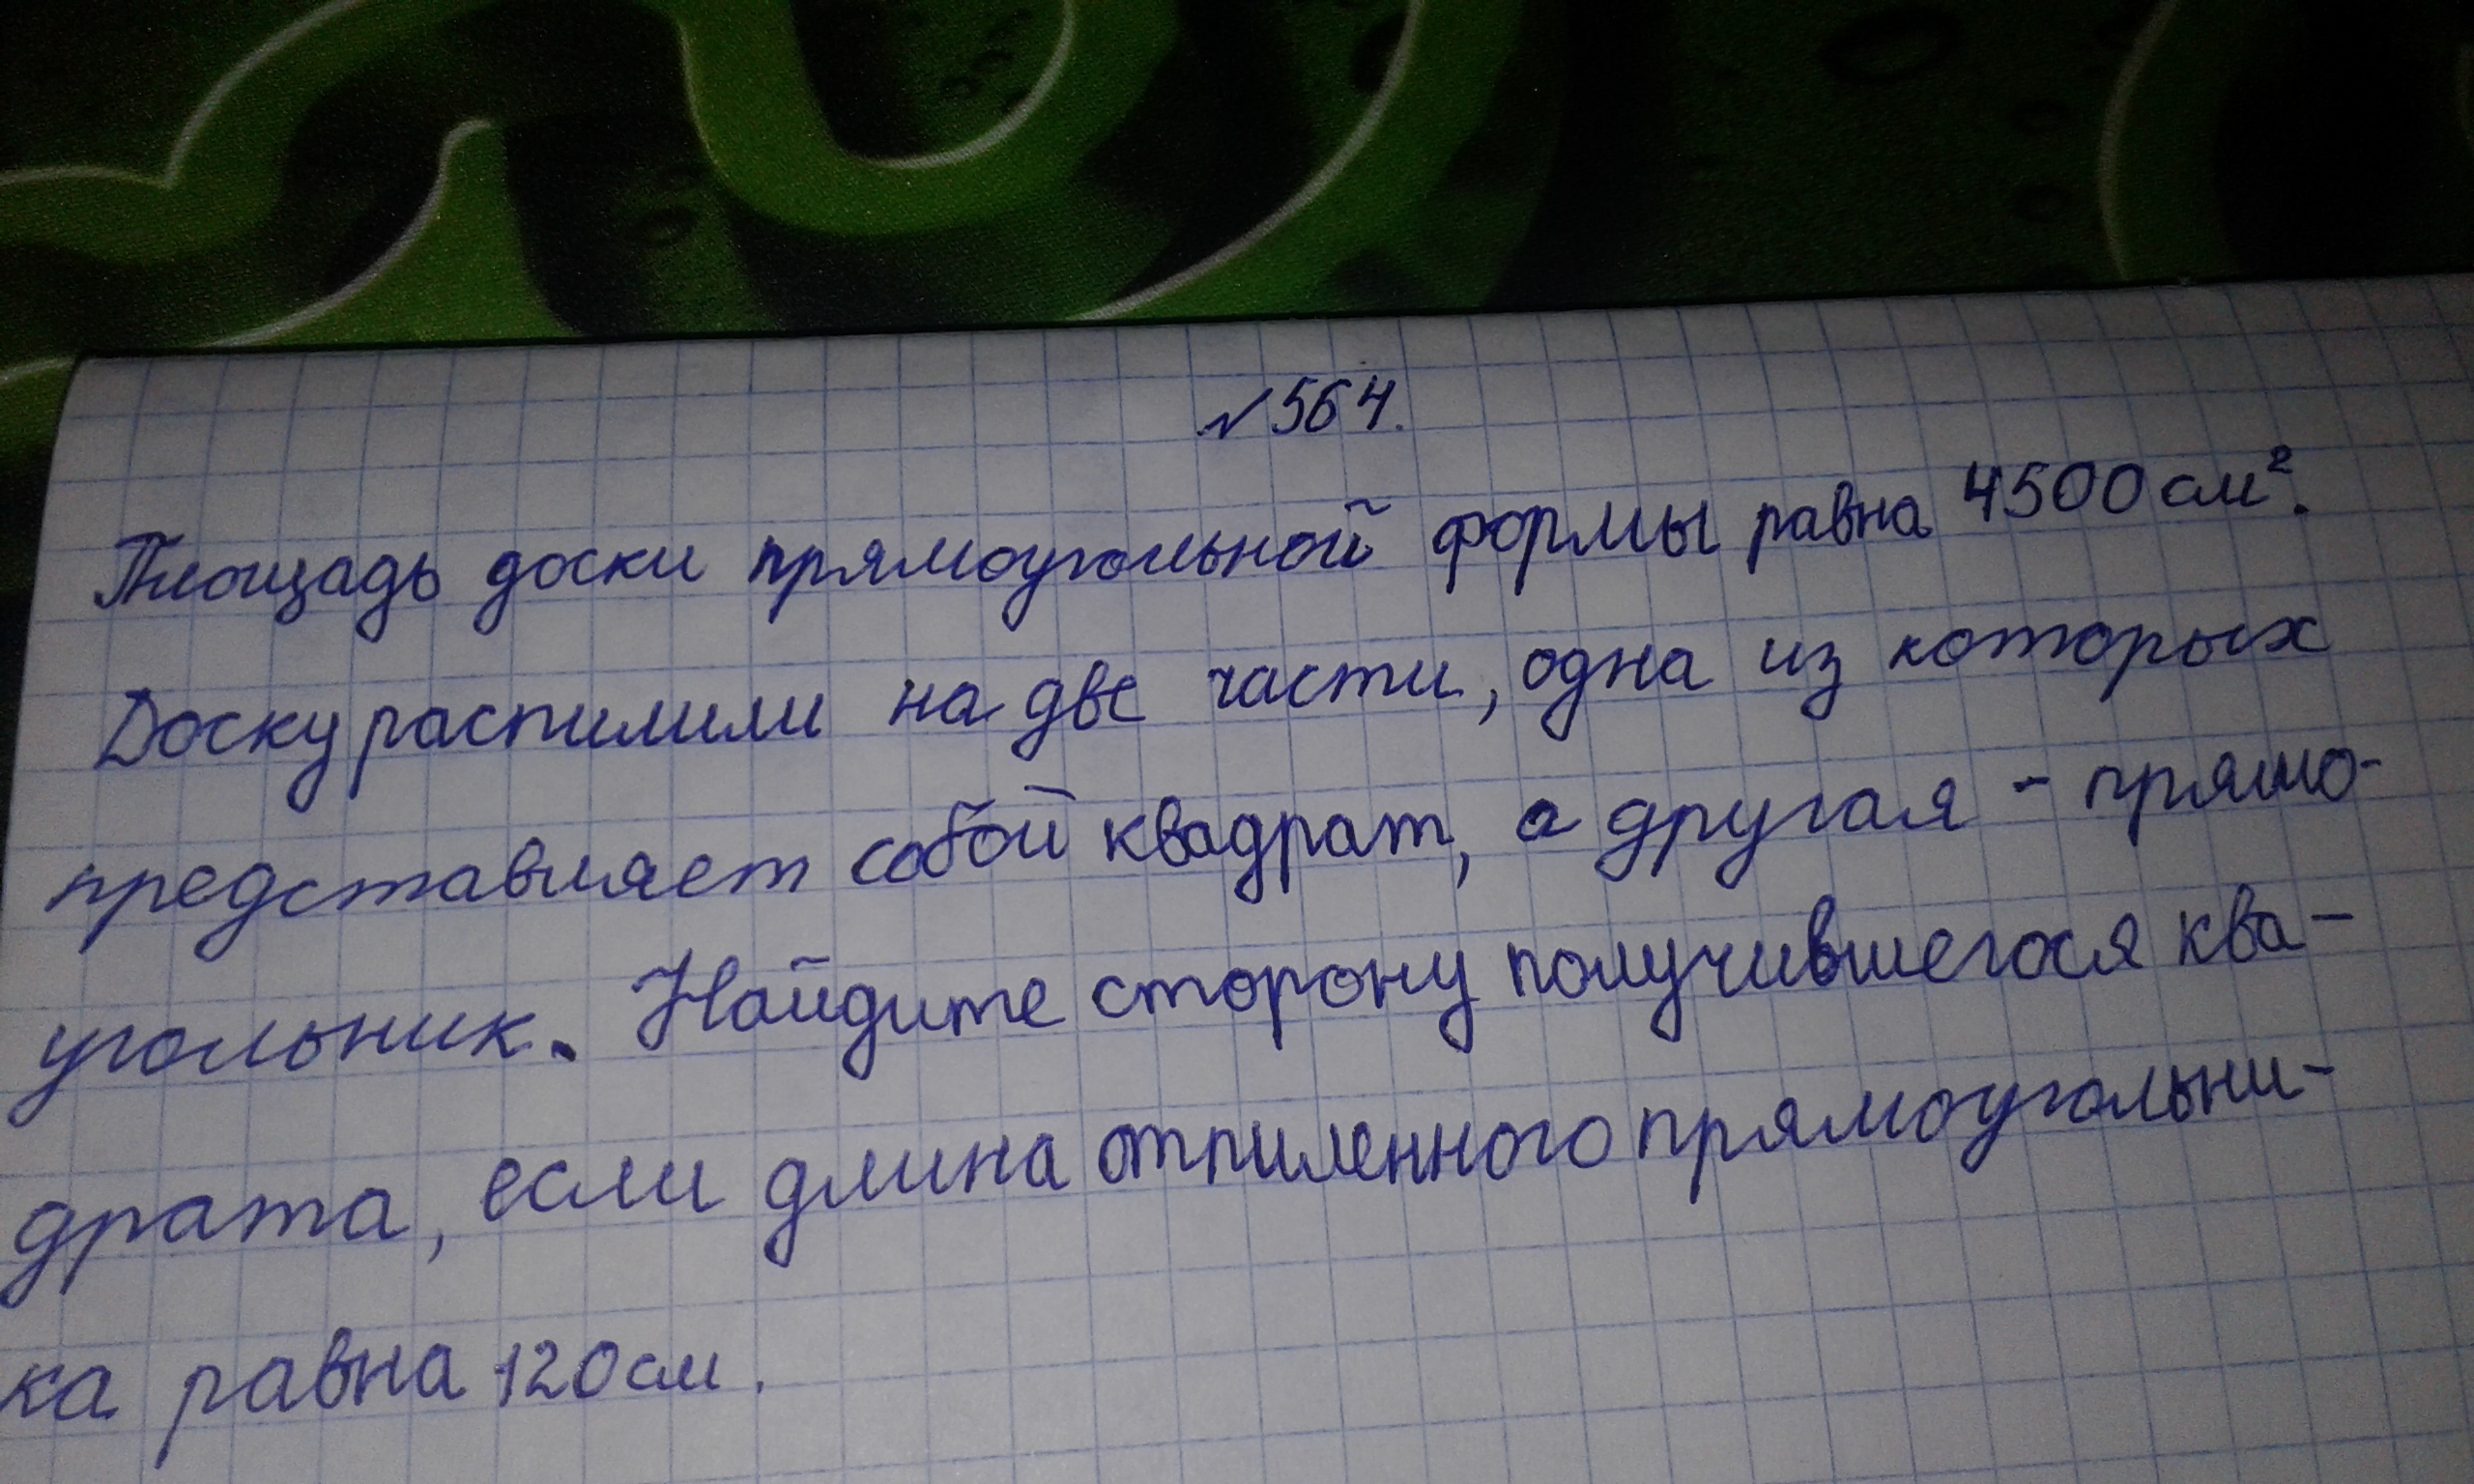 №564.
Площадь доски прямоугольной формы равна 4500 см².
Доску распилили на две части, одна из которых
представляет собой квадрат, а другая - прямо-
угольник. Найдите сторону получившегося ква-
драта, если длина отпиленного прямоугольни-
ка равна 120 см.